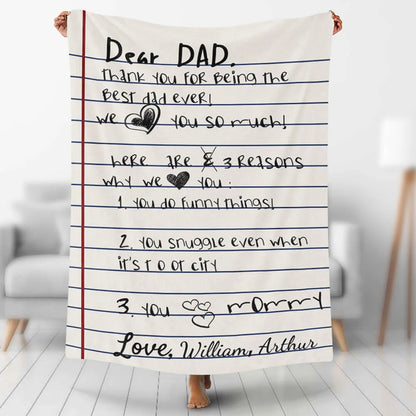 Dear DAD,
thank you for being the
Best dad ever!
we you so much!
here are 3 Reasons
why we you :
1. you do funny things!
2. you snuggle even when
it's t o ot city
3. you mommy
Love, William, Arthur